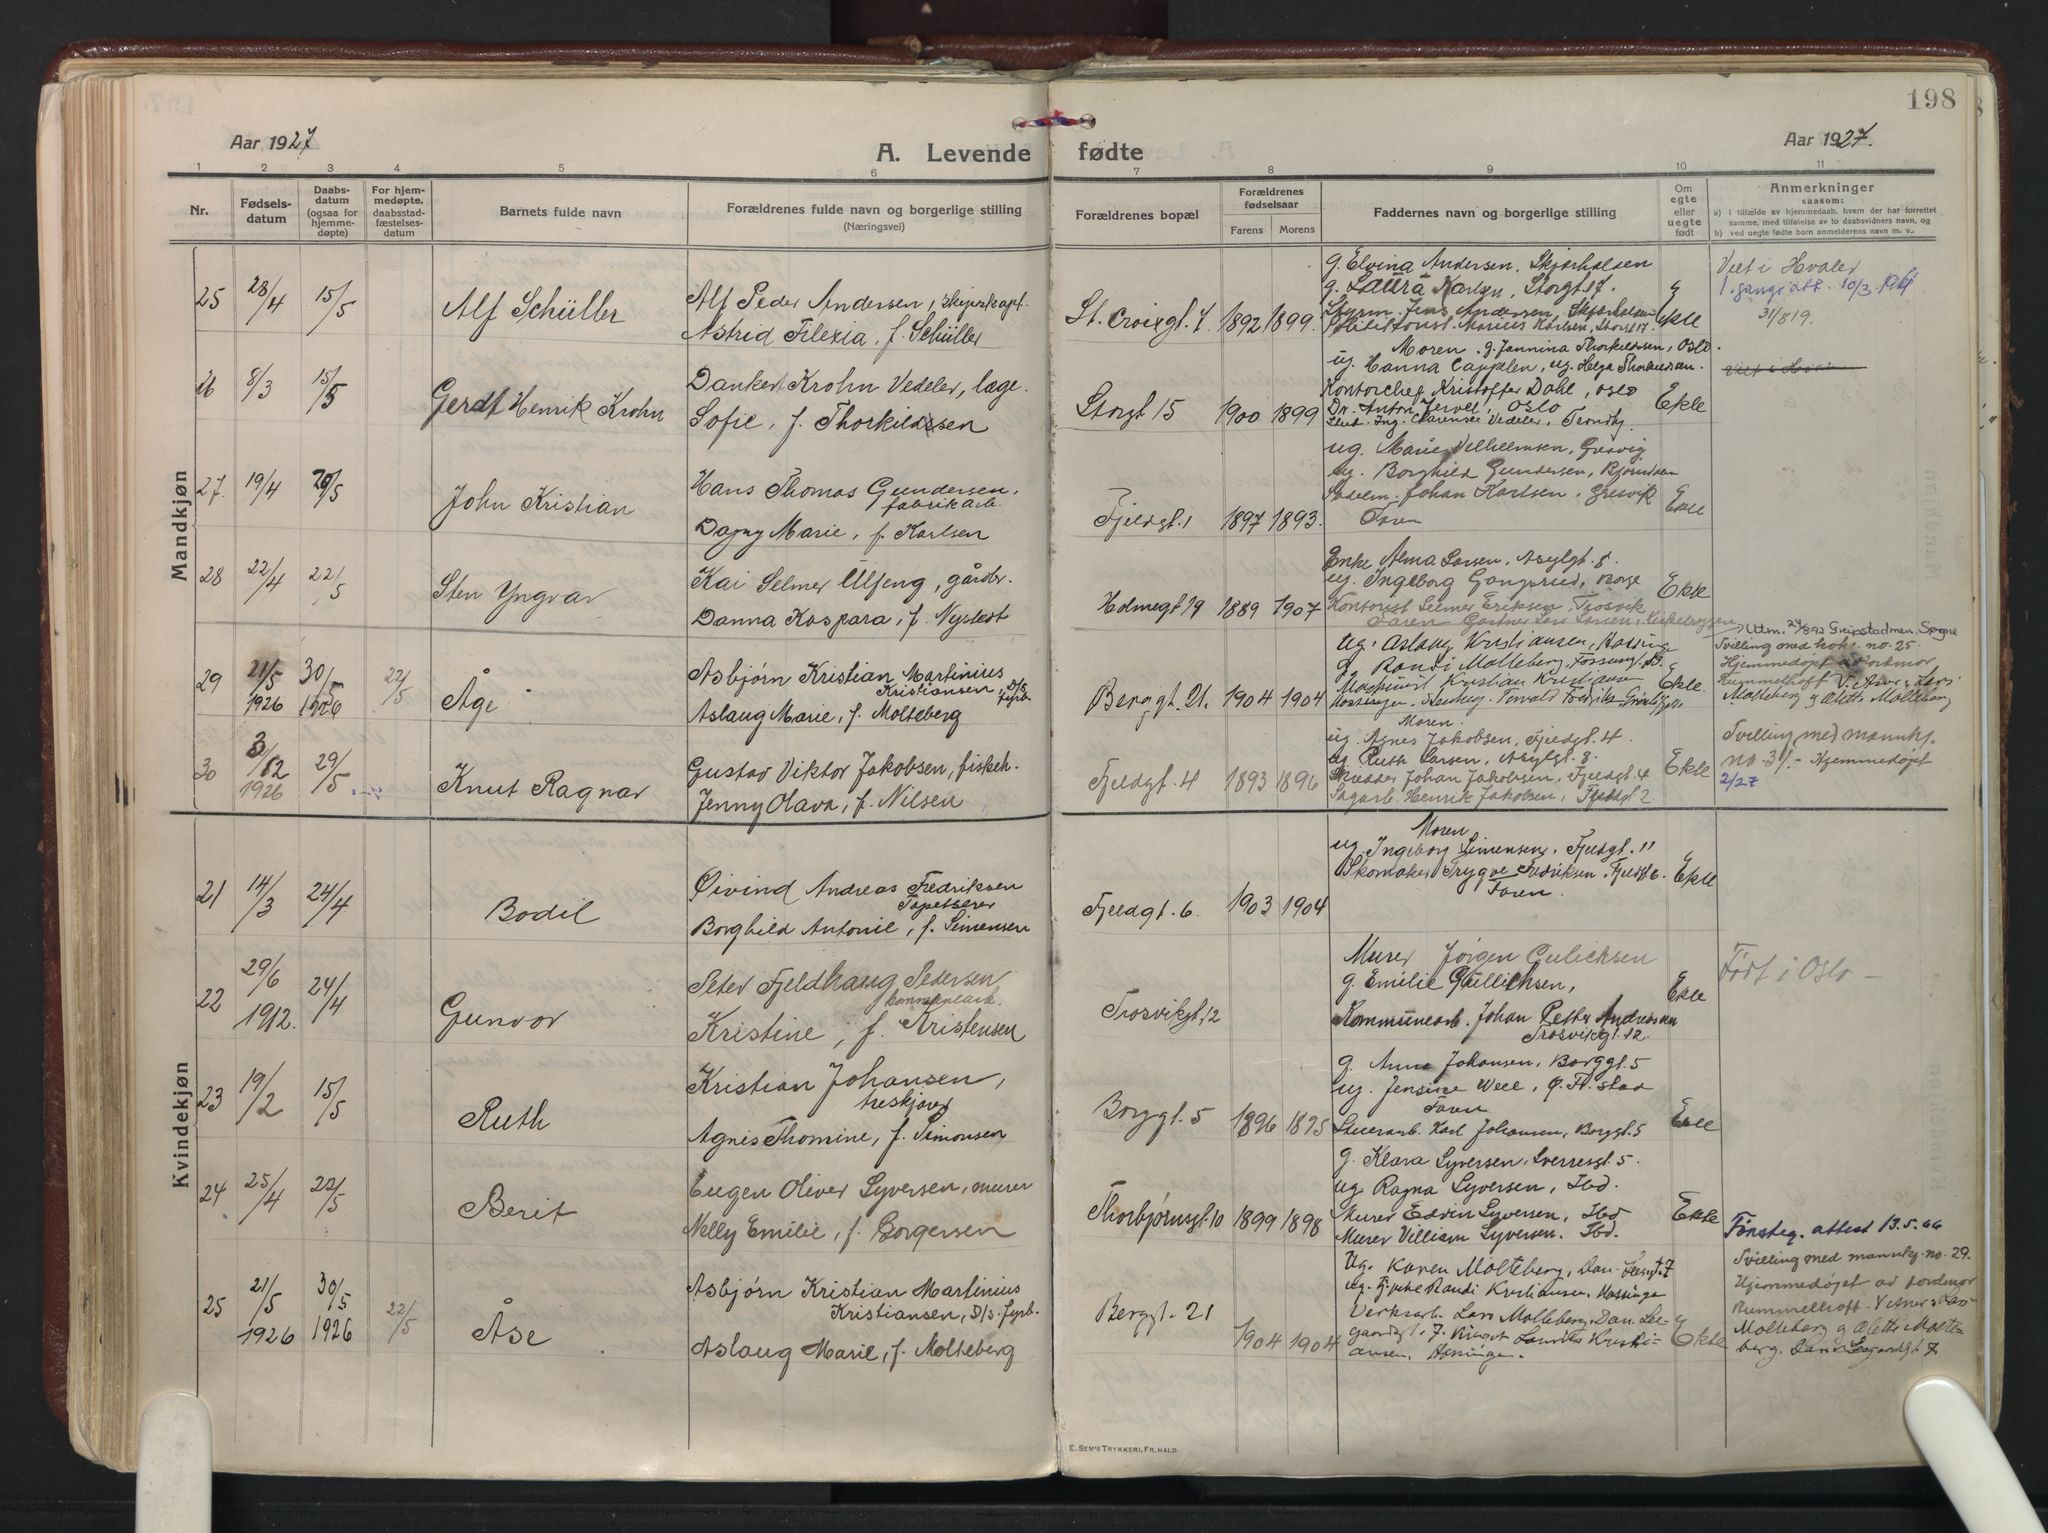 198
Aar 1927
A. Levende fødte
Aar 1927.
1 2 3 4 5 6 7 8 9 10 11
Nr.
Fødsels-
datum
Daabs-
datum
(ogsaa for
hjemme-
døpte)
For hjem-
medøpte,
daabsstad-
fæstelses-
datum
Barnets fulde navn
Forældrenes fulde navn og borgerlige stilling
(Næringsvei)
Forældrenes bopæl
Forældrenes
fødselsaar
Farens Morens
Faddernes navn og borgerlige stilling
Om
egte
eller
uegte
født
Anmerkninger
saasom:
a) I tilfælde av hjemmedaab, hvem der har forrettet
samme, med tilføielse av to daabsvidners navn, og
b) ved uegte fødte barn anmelderens navn m. v.
Mandkjøn
25 28/4 15/5
Alf Schüller
Alf Peder Andersen, skipskapt.
Astrid Filexia, f. Schüller
St. Croixgt. 7 1892 1899
g. Elvina Andersen, Skjærhalsen
g. Laura Karlsen, Storgt 17.
Styrm. Jens Andersen, Skjærhalsen
Politikonst. Marius Karlsen, Storgt 17.
Ekte
Viet i Hvaler
10/3. 1961
31/819.
26 8/3 15/5
Gerdt Henrik Krohn
Dankert Krohn Vedeler, læge
Sofie, f. Thorkildsen
Storgt 15 1900 1899
Moren, g. Jannina Thorkildsen, Oslo.
ug. Hanna Cappelen, ug. Helga Thorkildsen.
Kontorchef Kristoffer Dahl, Oslo
Dr. Anton Jervel, Oslo
Stud. Ing. Clarense Vedeler, Trondhj.
Ekte
27. 19/4 29/5
John Kristian
Hans Thomas Gundersen,
fabrikarb.
Dagny Marie, f. Karlsen
Fjeldgt. 1 1897 1893.
ug. Marie Vilhelmsen, Gresvig
ug. Borghild Gundersen,
Johan Karlsen, Gresvik
Faren
Ekte
28 22/4 22/5
Sten Yngvar
Kai Selmer Ulfeng, gårdbr.
Danna Kaspara, f. Nysted
Holmegt 19 1889 1907
Enke Alma Larsen, Asylgt. 8.
ug. Ingeborg Gangsrud, Borge
Kontorist Selmer Eriksen, Trosvik
Faren
Ekte
29 21/5 1926 30/5 1926 22/5
Åge
Asbjørn Kristian Martinius
Kristiansen, D/s fyrb.
Aslaug Marie, f. Molteberg
Berggt. 21. 1904 1904
ug. Aslaug Kristiansen,
g. Randi Molteberg,
Maskinist Kristian Kristiansen
Ekte
Utm. 24/892
Tvilling med no. 25.
Hjemmedøpt av jordmor
Rummelhoff.
Molteberg og Aletti Molteberg
30 3/12 1926 29/5
Knut Ragnar
Gustav Viktor Jakobsen, fiskeh.
Jenny Olava, f. Nilsen
Fjeldgt. 4 1893 1896
Moren.
ug. Agnes Jakobsen, Fjeldgt. 4.
ug. Ruth Larsen, Asylgt. 8.
Johan Jakobsen, Fjeldgt. 4
Sagarb. Henrik Jakobsen, Fjeldgt 2.
Ekte
Tvilling med mannkj.
no - Hjemmedøpt
2/27
Kvindekjøn
21 14/3 24/4
Bodil
Øivind Andreas Fredriksen
Tapetserer
Borghild Antonie, f. Simensen
Fjeldgt. 6. 1903 1904
Moren
ug. Ingeborg Simensen, Fjeldgt. 11
Skomaker Trygve Fredriksen, Fjeldgt 6.
Faren.
Ekte
22 29/6 1912. 24/4
Gunvor
Peter Fjeldhaug Petersen
kommunearb.
Kristine, f. Kristensen
Trosvikgt. 12
Murer Jørgen Gulichsen
g. Emilie Gullichsen,
Kommunearb. Johan Petter Andresen
Trosvikgt. 12.
Ekte
Født i Oslo -
23 19/2 15/5
Ruth
Kristian Johansen,
treskjærer
Agnes Thomine, f. Simonsen
Borggt. 5 1896 1895
g. Anna Johansen, Borggt. 5
ug. Jensine Weel, Ø. Fr. stad
Faren
Stuerarb. Karl Johansen, Borggt. 5
Ekte
24 25/4 22/5
Berit
Eugen Oliver Syversen, murer
Nelly Emilie, f. Borgersen
Thorbjørnsgt. 10 1899 1898
g. Klara Syversen, Sverresgt. 5.
ug. Ragna Syversen, Ibd.
Murer Edvin Syversen, Ibd
Murer Villiam Syversen. Ibd.
Ekte
attest 13.5.66
25 21/5 1926 30/5 1926 22/5
Åse
Asbjørn Kristian Martinius
Kristiansen, D/s. Fyrb.
Aslaug Marie, f. Molteberg
Berggt. 21 1904 1904
Ug. Karen Molteberg,
ug. Randi Kristiansen,
Verksarb. Lars Molteberg,
Ekte
Tvilling med mannkj. no. 29.
Hjemmedøpt av jordmor
Rummelhoff.
Molteberg og Aletti Molte-
berg.
E. SEM'S TRYKKERI, FR. HALD